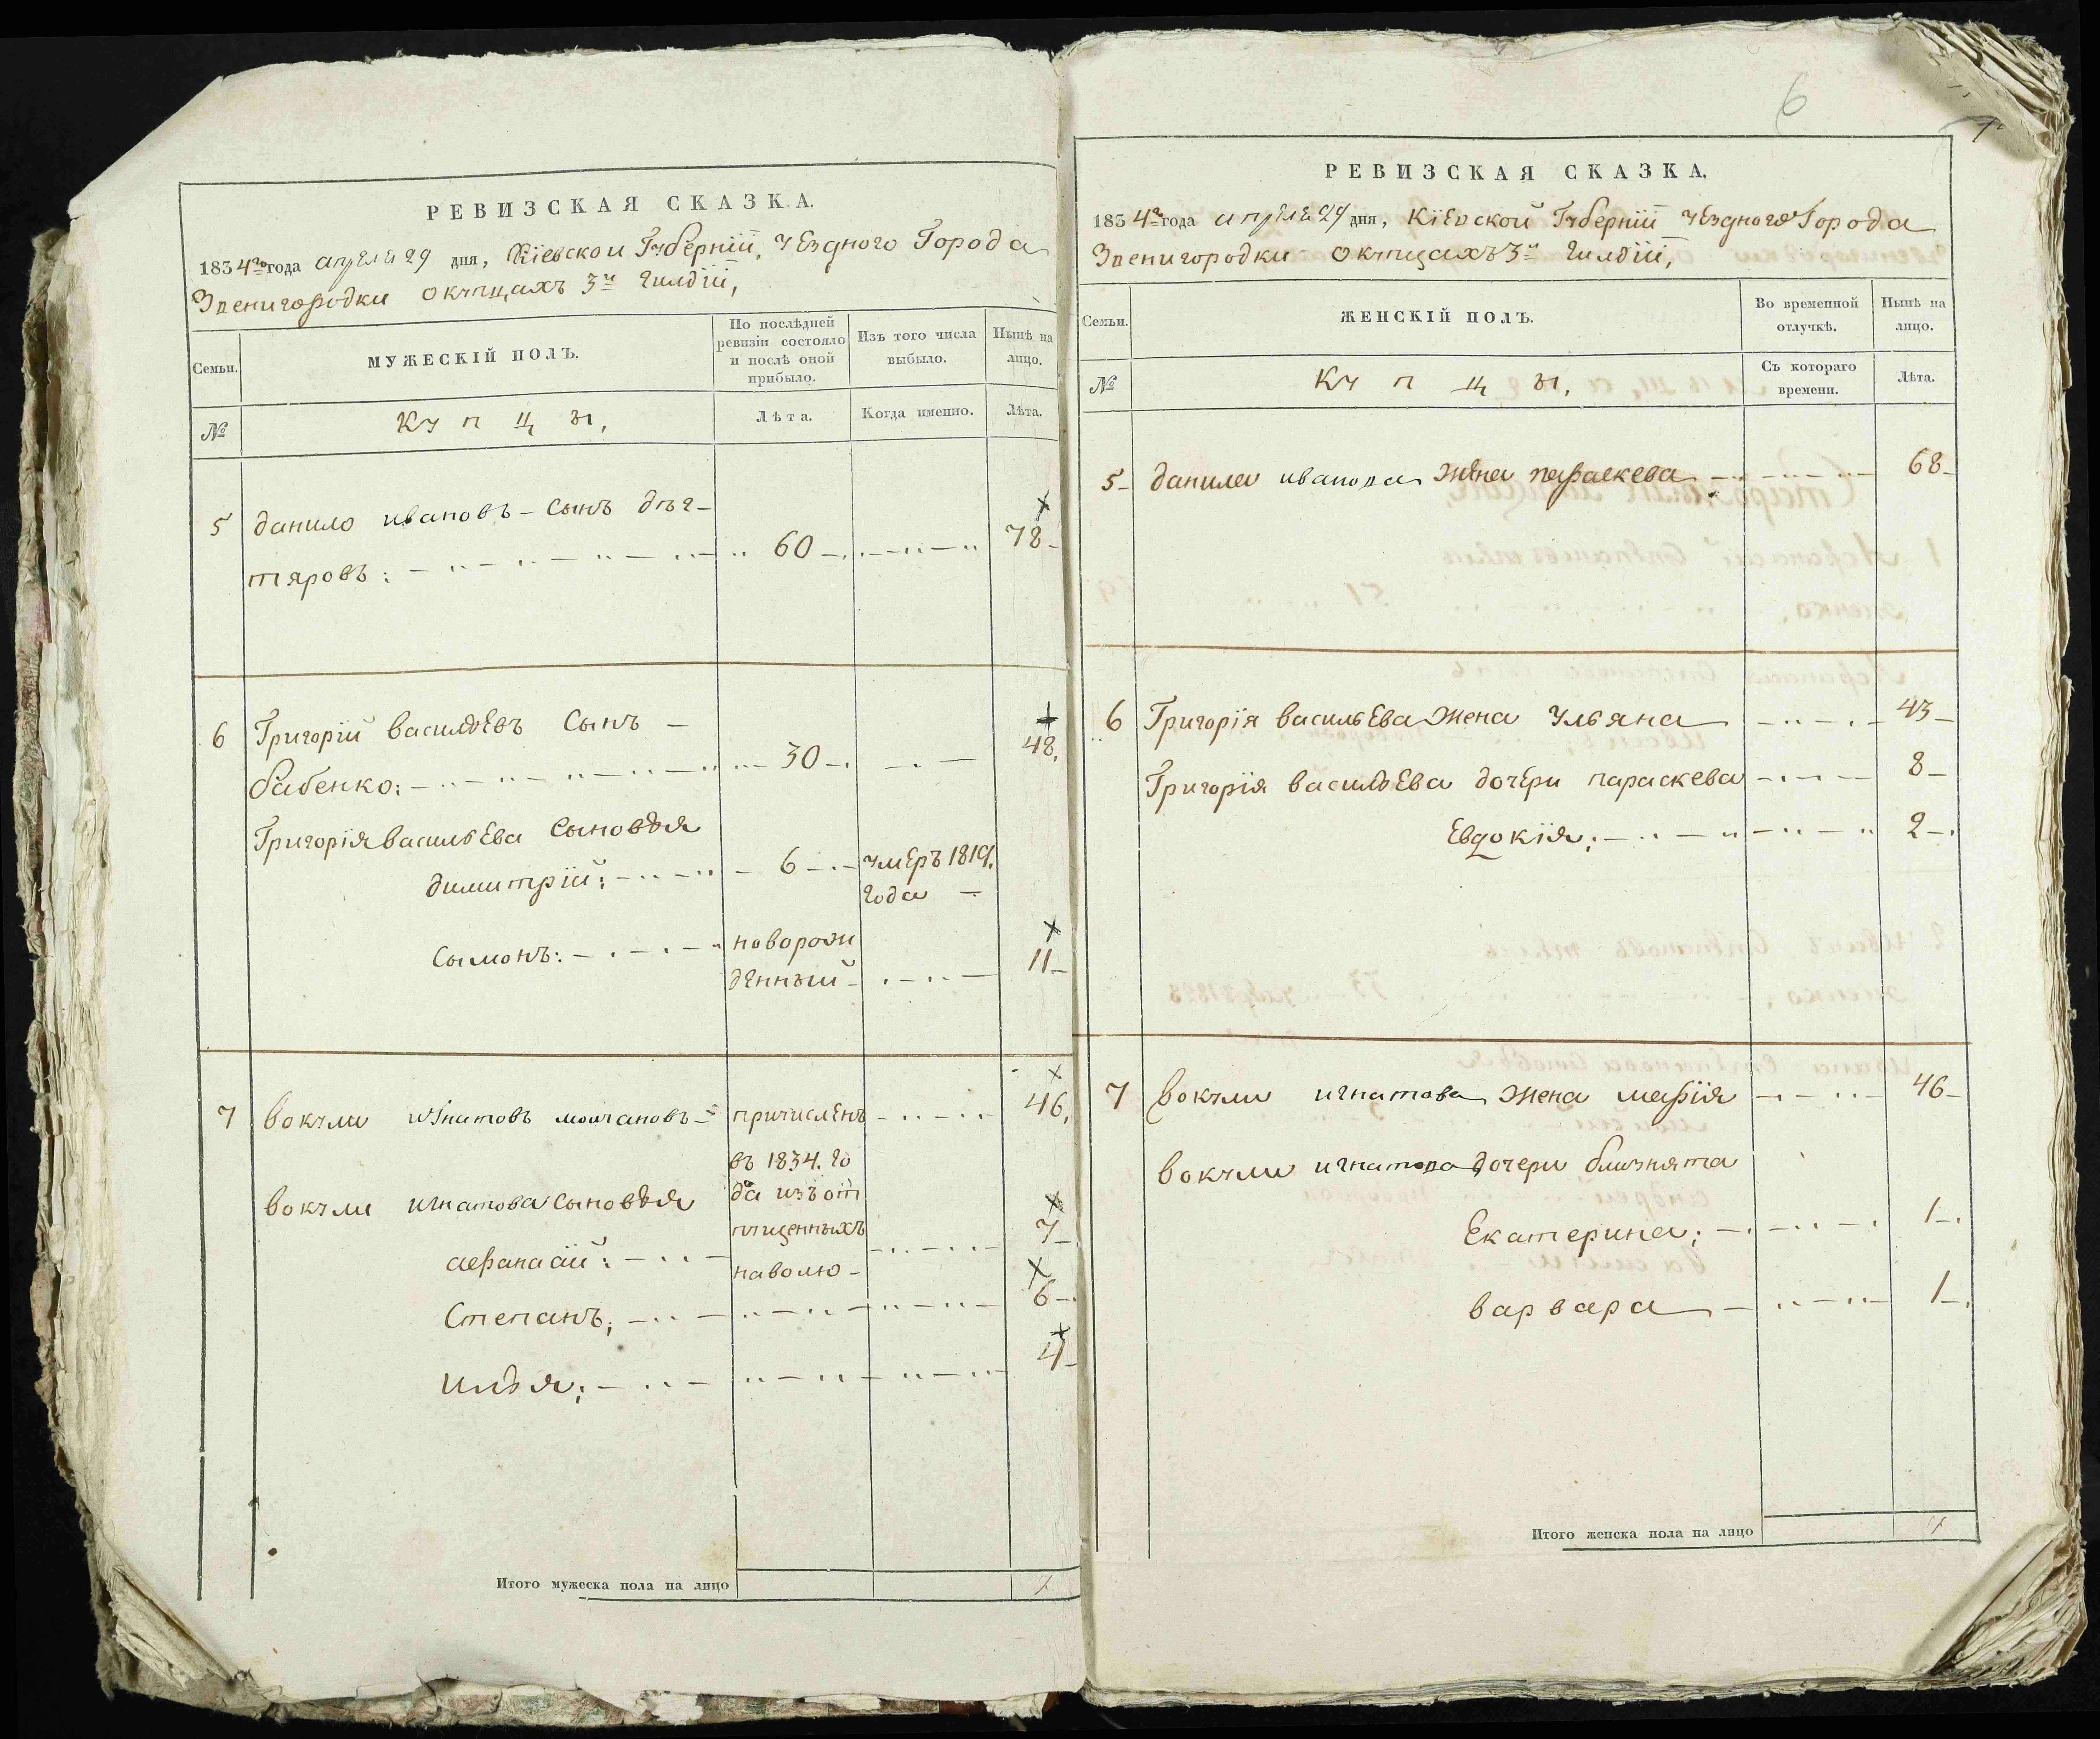 6
РЕВИЗСКАЯ СКАЗКА.
1834го года апреля 29 дня, Кіевской Губерніи, уездного Города
Звенигородки окупцахъ 3й Гилдіи,
Семьи.
МУЖЕСКІЙ ПОЛЪ.
По послѣдней ревизіи состояло и послѣ оной прибыло.
Изъ того числа выбыло.
Нынѣ на лицо.
№
Купцы,
Лѣта.
Когда именно.
Лѣта.
5 данило ивановъ - сынъ дѣг-
тяровъ: 60 78
6 Григорій васильевъ сынъ -
бабенко: 30 48,
Григорія васильева сыновья
димитрій: 6 умеръ 1819.
года
сымонъ: новорож
денный 11
7 вокули игнатовъ молчановъ причисленъ 46,
въ 1834. го
вокули игнатова сыновья да изъ от
пущенныхъ 7
афанасій: наволю
Степанъ; 6
илья; 4
Итого мужеска пола на лицо 7
РЕВИЗСКАЯ СКАЗКА.
1834го года апреля 29 дня, Кіевской Губерніи уездного Города
Звенигородки окупцахъ 3й Гилдіи,
Семьи.
ЖЕНСКІЙ ПОЛЪ.
Во временной отлучкѣ.
Нынѣ на лицо.
№
Купцы,
Съ котораго времени.
Лѣта.
5 данила иванова жена параскева 68
6 Григорія васильева жена Ульяна 43
Григорія васильева дочери параскева 8
Евдокія; 2
7 вокули игнатова жена марія 46
вокули игнатова дочери близнята
Екатерина; 1
варвара 1
Итого женска пола на лицо 7